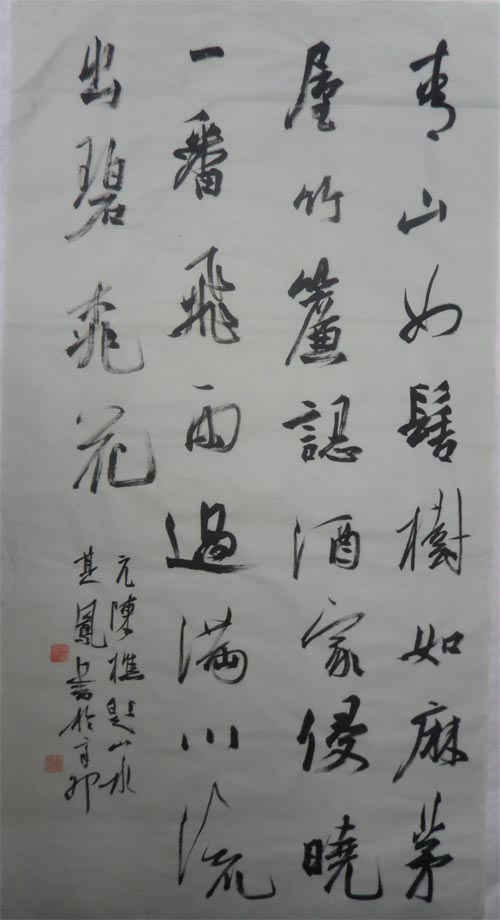 青山如髻樹如麻茅
屋竹簾認酒家侵曉
一番飛雨過滿川流
出碧桃花
元陳樵題山水
其鳳書於辛卯